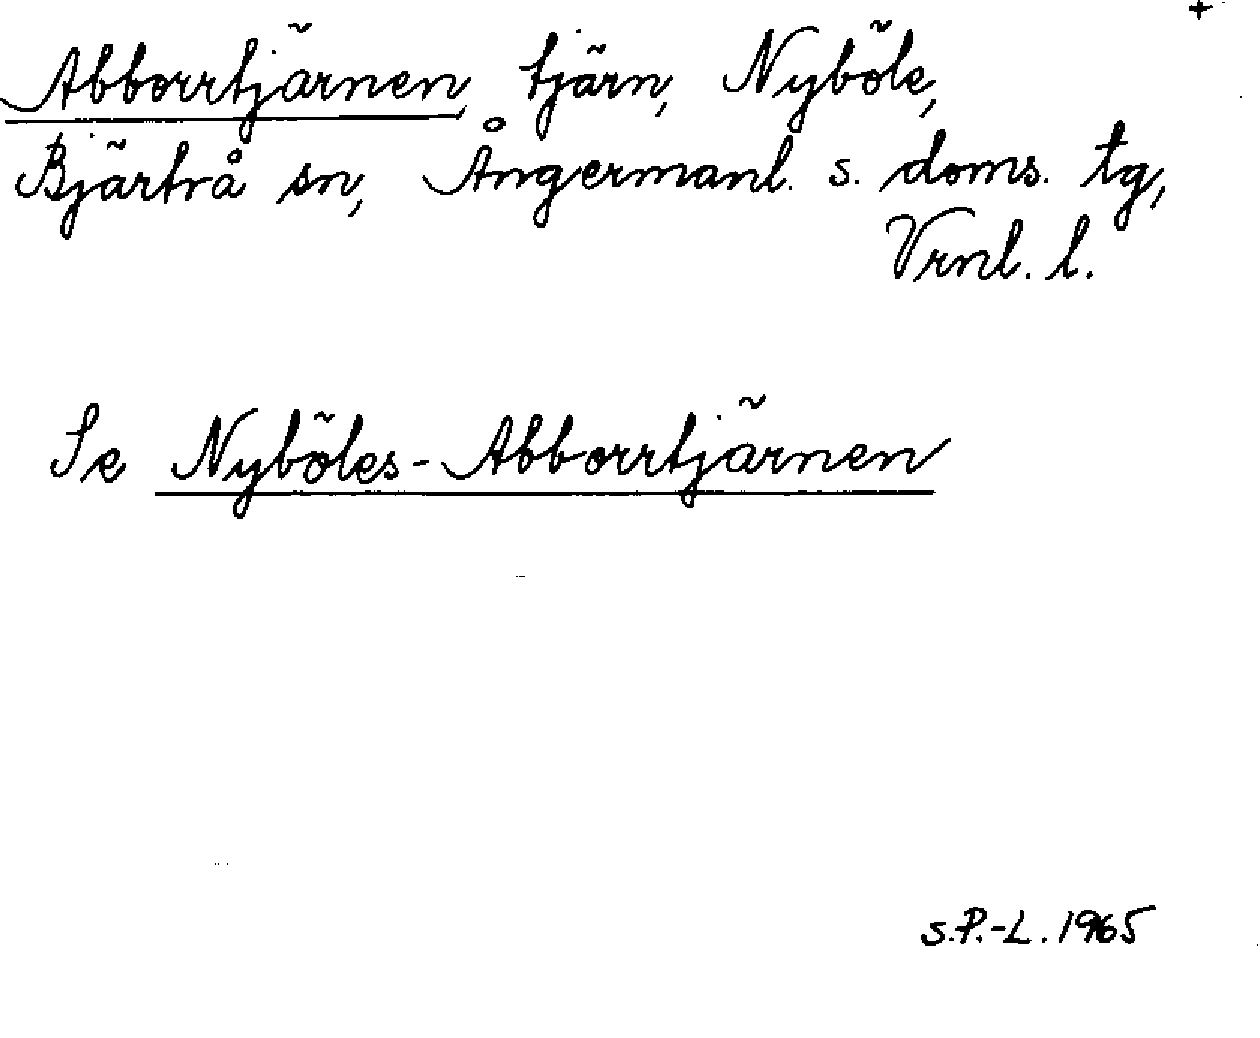 +
Abborrtjärnen, tjärn, Nyböle,
Bjärtrå sn, Ångermanl. s. doms. tg,
Vrnl. l.
Se Nyböles-Abborrtjärnen
S.P.-L. 1965